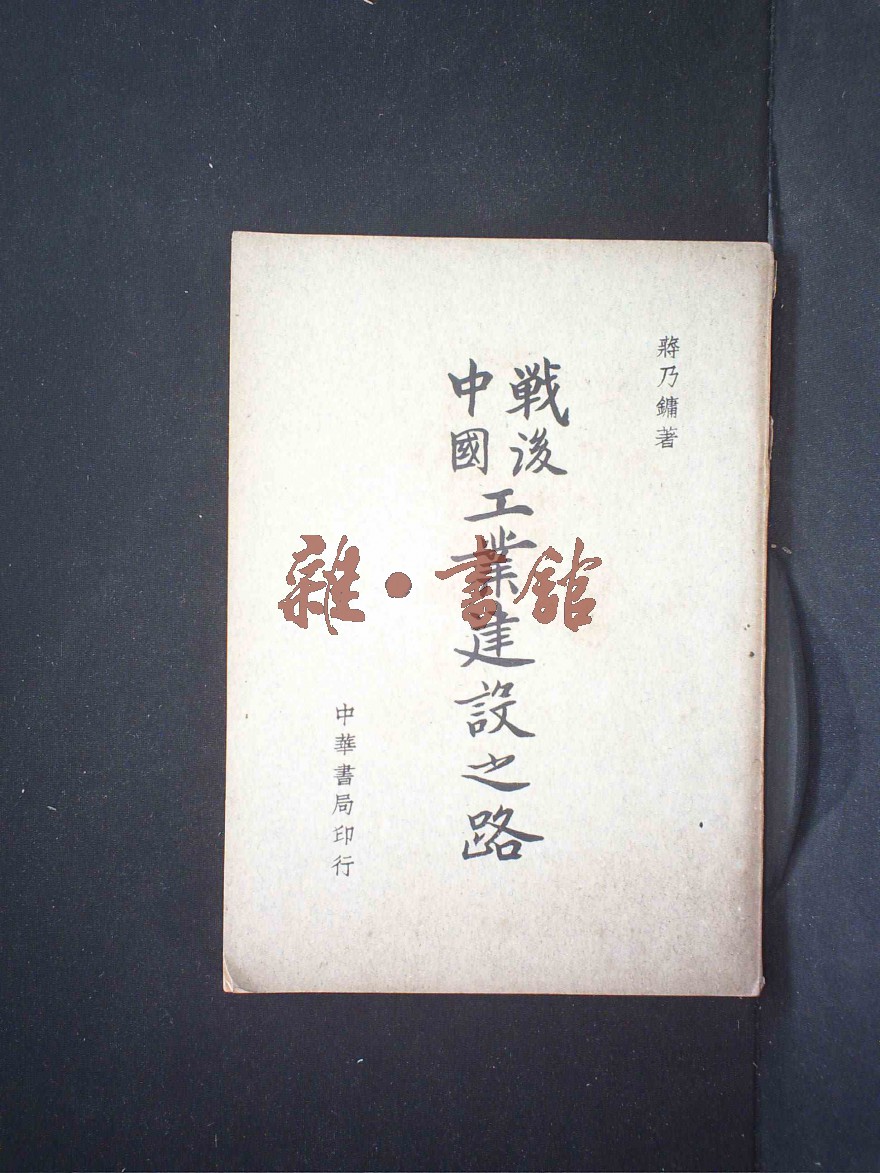 蔣乃鏞著
戰後
中國
工業建設之路
中華書局印行
雜·書館